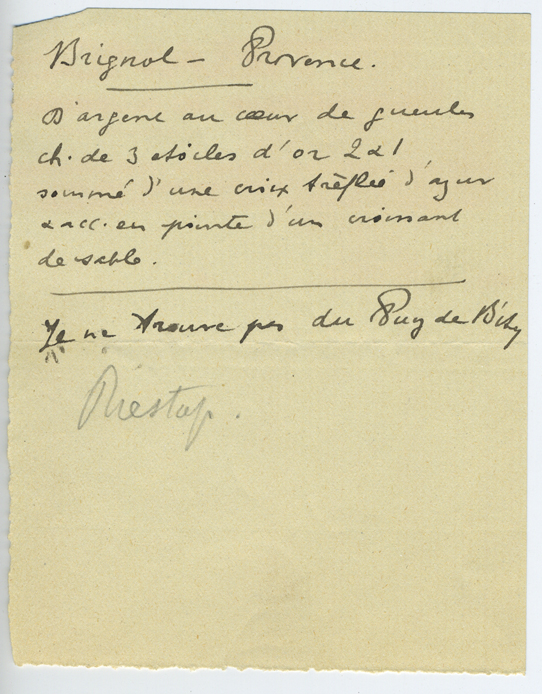 Brignol – Provence.
D'argent au cœur de gueules
ch. de 3 etoiles d'or 2 & 1
sommé d'une croix tréflée d'azur
& acc. en pointe d'un croissant
de sable.
Je ne trouve pas du Puy de
Riestap.